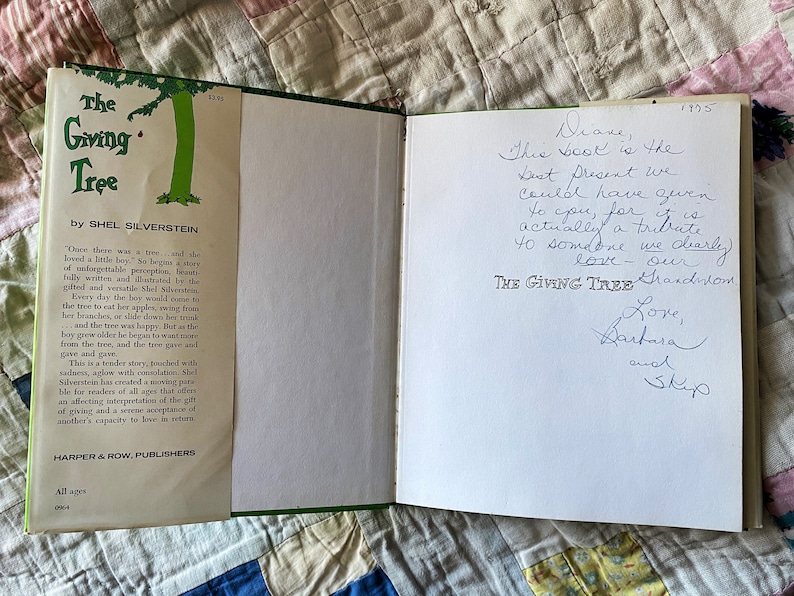 The
Giving
Tree
$3.95
by SHEL SILVERSTEIN
"Once there was a tree . . . and she
loved a little boy." So begins a story
of unforgettable perception, beauti-
fully written and illustrated by the
gifted and versatile Shel Silverstein.
Every day the boy would come to
the tree to eat her apples, swing from
her branches, or slide down her trunk
. . . and the tree was happy. But as the
boy grew older he began to want more
from the tree, and the tree gave and
gave and gave.
This is a tender story, touched with
sadness, aglow with consolation. Shel
Silverstein has created a moving para-
ble for readers of all ages that offers
an affecting interpretation of the gift
of giving and a serene acceptance of
another's capacity to love in return.
HARPER & ROW, PUBLISHERS
All ages
0964
1975
Diane,
This book is the
best present we
could have given
to you, for it is
actually a tribute
to someone we dearly
love – our
Grandmom
THE GIVING TREE
Love,
Barbara
and
Skip